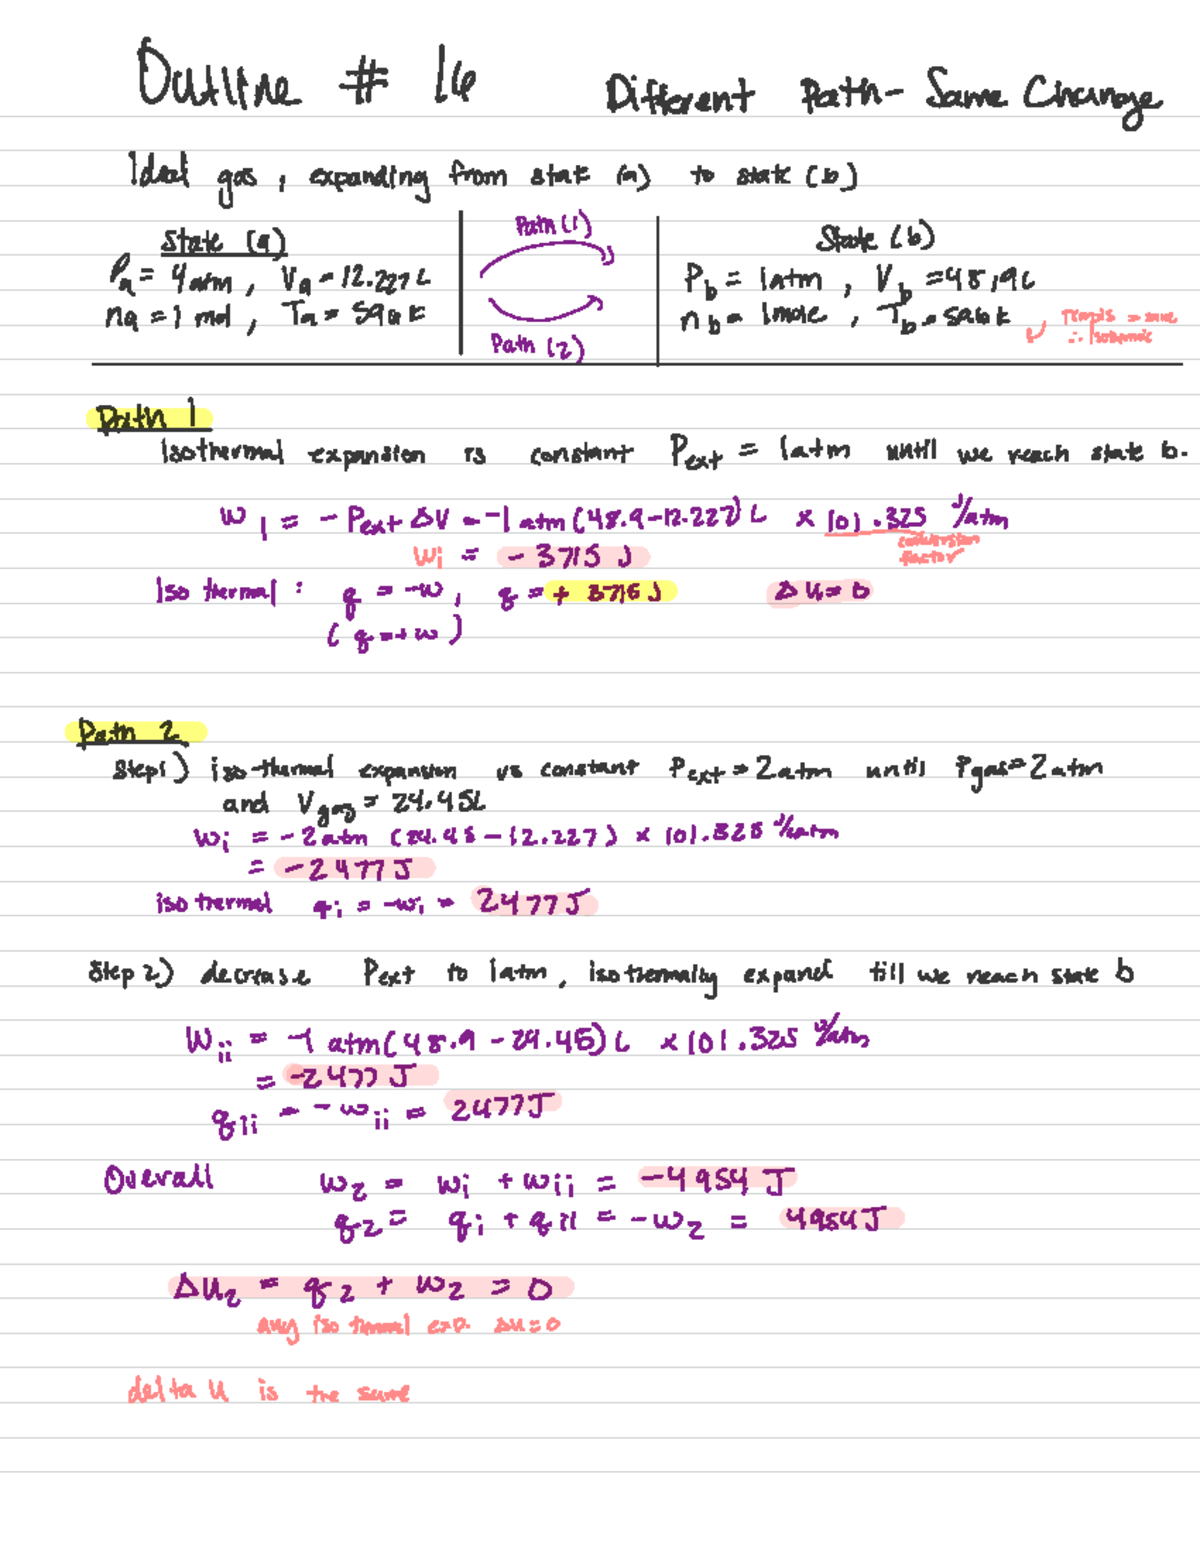 Outline # 16
Different Path- Same Change
Ideal gas, expanding from state (a) to state (b)
State (a)
Pa = 4atm, Va = 12.227L
na = 1 mol, Ta = 596K
Path (1)
Path (2)
State (b)
Pb = 1atm, Vb = 48.9L
nb = 1mole, Tb = 596k
Temps = same
∴ Isothermic
Path 1
Isothermal expansion is constant Pext = 1atm until we reach state b.
w1 = - Pext ΔV = -1 atm (48.9-12.227) L x 101.325 J/atm
conversion
factor
wi = - 3715 J
Iso thermal: q = -w, q = + 3715 J ΔU= 0
(q=+w)
Path 2
Step1) iso-thermal expansion vs constant Pext = 2atm until Pgas= 2atm
and Vgas = 24.45L
wi = -2atm (24.45-12.227) x 101.325 J/Latm
= -2477J
iso thermal qi = -wi = 2477J
Step 2) decrease Pext to 1atm, isothermally expand till we reach state b
Wii = -1 atm(48.9 -24.45) L x 101.325 J/atm
= -2477 J
qii = -wii = 2477J
Overall w2 = wi + wii = -4954 J
q2= qi + qii = -w2 = 4954J
ΔU2 = q2 + w2 = 0
any iso thermal exp. Δu=0
delta U is the same